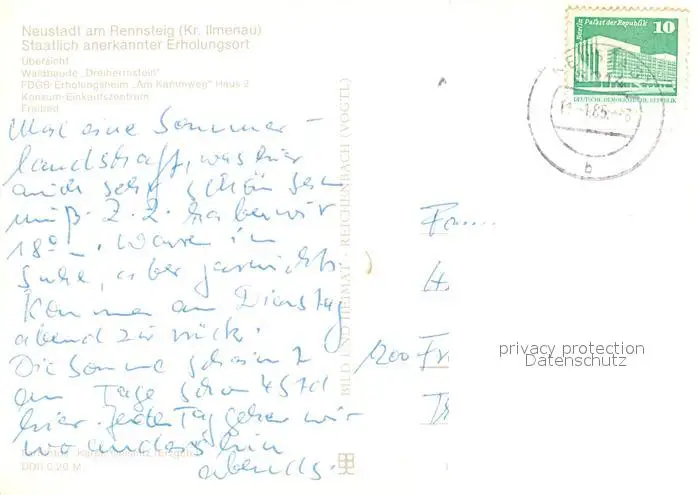 Neustadt am Rennsteig (Kr. Ilmenau)
Staatlich anerkannter Erholungsort
Übersicht
Waldbaude "Dreiherrnstein"
FDGB-Erholungsheim "Am Kammweg" Haus 2
Konsum-Einkaufszentrum
Freibad
Mal eine Sommer-
landschaft, was hier
auch sehr schön sein
muß. Z. Z. haben wir
18°-. Waren in
Suhl, aber garnichts.
Kommen am Dienstag
abend zurück.
Die Sonne schein
am Tage schon 4 Std
hier. Jeden Tag gehen wir
wo anders hin
abends.
DDR 0,20 M
BILD UND HEIMAT - REICHENBACH (VOGTL)
Berlin Palast der Republik 10
DEUTSCHE DEMOKRATISCHE REPUBLIK
1.85
b
Fa....
1200
privacy protection
Datenschutz